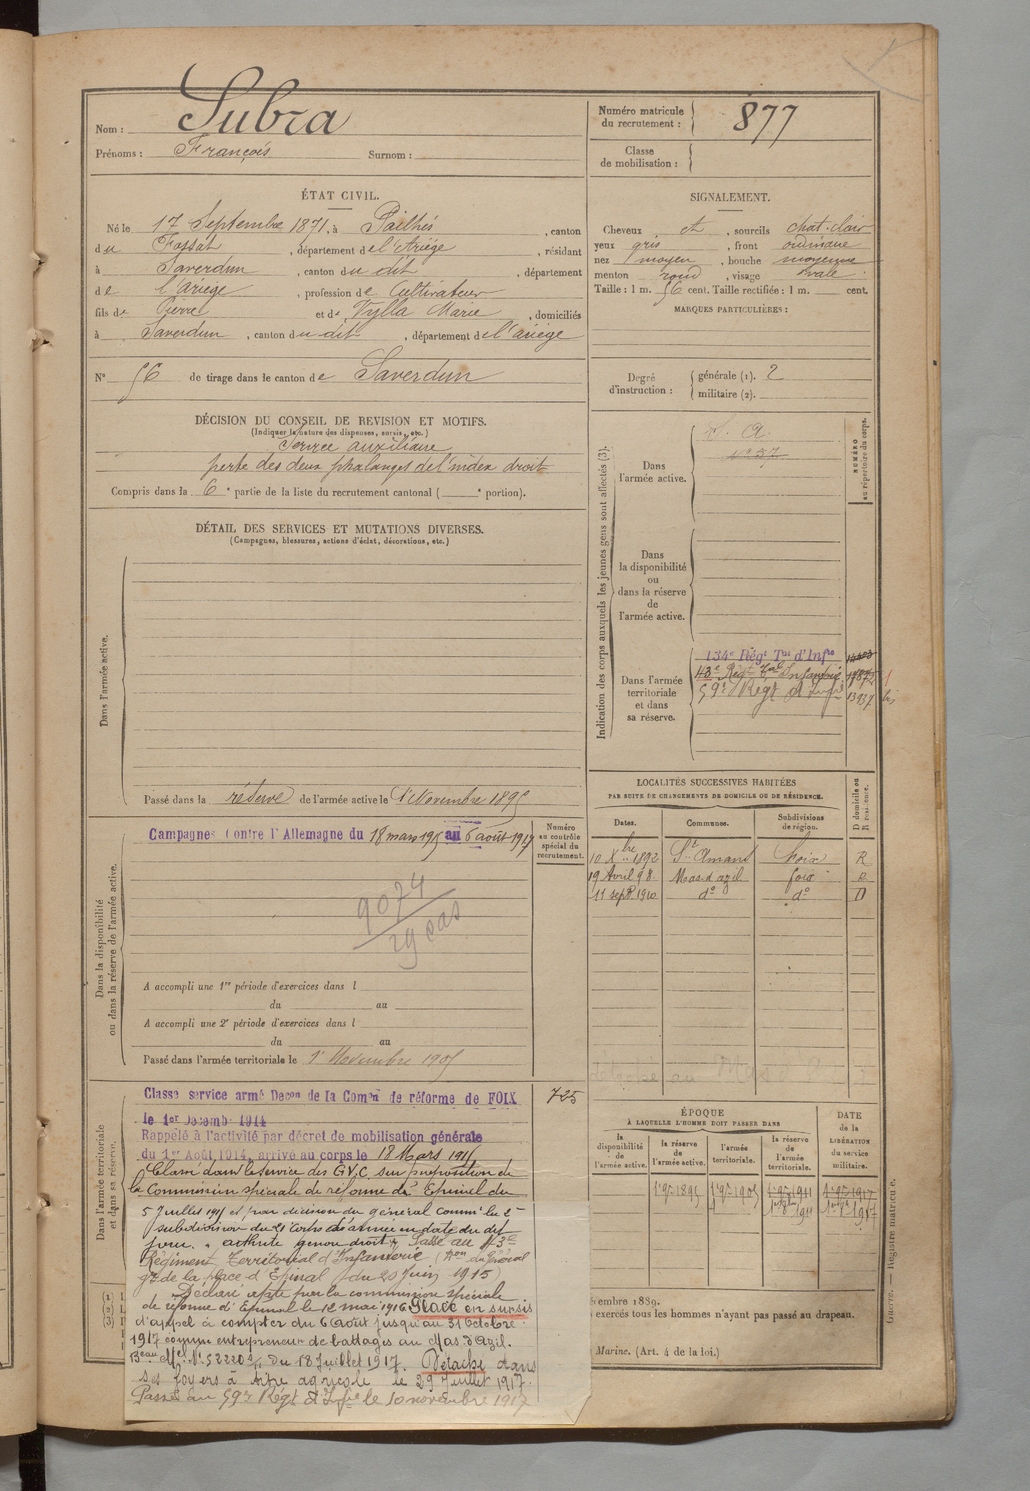 Nom : Subra
Prénoms : François Surnom :
Numéro matricule
du recrutement : 877
Classe
de mobilisation :
ÉTAT CIVIL.
Né le 17 Septembre 1871, à Pailhés, canton
du Fossat, département de l'Ariége, résidant
à Saverdun, canton du dit, département
de l'ariège, profession de Cultivateur
fils de Pierre et de Tylla Marie, domiciliés
à Saverdun, canton du dit, département de l'ariège
N° 56 de tirage dans le canton de Saverdun
SIGNALEMENT.
Cheveux et, sourcils chat. clair
yeux gris, front ordinaire
nez moyen, bouche moyenne
menton rond, visage ovale
Taille : 1 m. 56 cent. Taille rectifiée : 1 m. cent.
MARQUES PARTICULIÈRES :
Degré
d'instruction :
générale (1). 2
militaire (2).
DÉCISION DU CONSEIL DE REVISION ET MOTIFS.
(Indiquer la nature des dispenses, sursis, etc.)
Service auxiliaire
perte des deux phalanges de l'index droit
Compris dans la 6e partie de la liste du recrutement cantonal ( e portion).
DÉTAIL DES SERVICES ET MUTATIONS DIVERSES.
(Campagnes, blessures, actions d'éclat, décorations, etc.)
Dans l'armée active.
Passé dans la réserve de l'armée active le 1er Novembre 1895
Indication des corps auxquels les jeunes gens sont affectés (3).
NUMÉRO
au répertoire du corps.
Dans
l'armée active.
S. A.
Dans
la disponibilité
ou
dans la réserve
de
l'armée active.
Dans l'armée
territoriale
et dans
sa réserve.
134e Régt Tal d'Infie
43e Régt Tal Infanterie
59e Régt d'Infie 13937 bis
LOCALITÉS SUCCESSIVES HABITÉES
PAR SUITE DE CHANGEMENTS DE DOMICILE OU DE RÉSIDENCE.
D domicile ou
R résidence.
Dates. Communes. Subdivisions
de région.
10 Xbre 1892 St Amans Foix R
19 Avril 98 Mas d'azil foix R
11 sept. 1910 do do D
Dans la disponibilité
ou dans la réserve de l'armée active.
Campagnes Contre l'Allemagne du 18 mars 1915 au 6 août 1917
Numéro
au contrôle
spécial du
recrutement.
9074
29 cas
A accompli une 1re période d'exercices dans l
du au
A accompli une 2e période d'exercices dans l
du au
Passé dans l'armée territoriale le 1er Novembre 1905
Dans l'armée territoriale
et dans sa réserve.
Classé service armé Décon de la Comon de réforme de FOIX 725
le 1er Décemb 1914
Rappelé à l'activité par décret de mobilisation générale
du 1er Août 1914, arrivé au corps le 18 Mars 1915
Classé dans le service des G.V.C. sur proposition de
la Commission spéciale de réforme d'Epinal du
5 Juillet 1915 et par décision du général commt la 2e
subdivision du 21e Corps d'armée en date du dit
jour. arthrite genou droit. Passé au 43e
Régiment Territorial d'Infanterie (Don du Général
gr de la place d'Epinal du 20 Juin 1915)
Déclaré apte par la commission spéciale
de réforme d'Epinal le 12 mai 1916 Placé en sursis
d'appel à compter du 6 Août jusqu'au 31 Octobre
1917 comme entrepreneur de battages au Mas d'Azil.
Du 18 Juillet 1917. Détaché dans
ses foyers à titre agricole le 29 Juillet 1917.
Passé au 59e Régt d'Infie le 10 novembre 1917
ÉPOQUE
À LAQUELLE L'HOMME DOIT PASSER DANS
DATE
de la
LIBÉRATION
du service
militaire.
la
disponibilité
de
l'armée active.
la réserve
de
l'armée active.
l'armée
territoriale.
la réserve
de
l'armée
territoriale.
1er 9bre 1895 1er 9bre 1905 1er 9bre 1911 1er 9bre 1917
écembre 1889.
exercés tous les hommes n'ayant pas passé au drapeau.
Marine. (Art. 4 de la loi.)
Guerre. — Registre matricule.